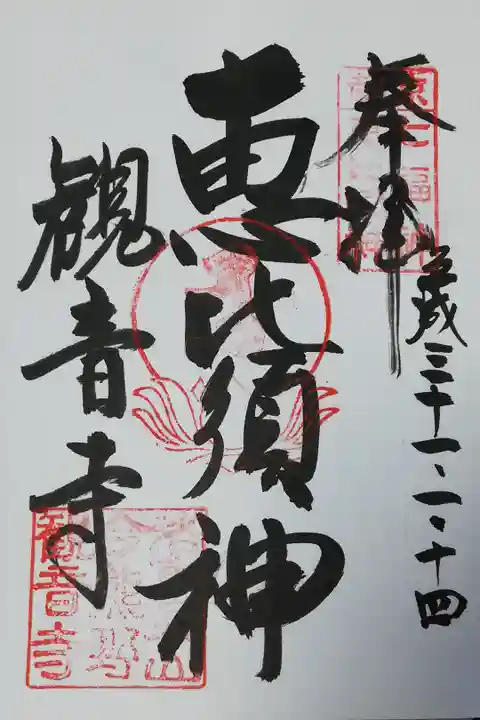 奉拝
平成三十一.一.十四
恵比須神
観音寺
七福
観音寺